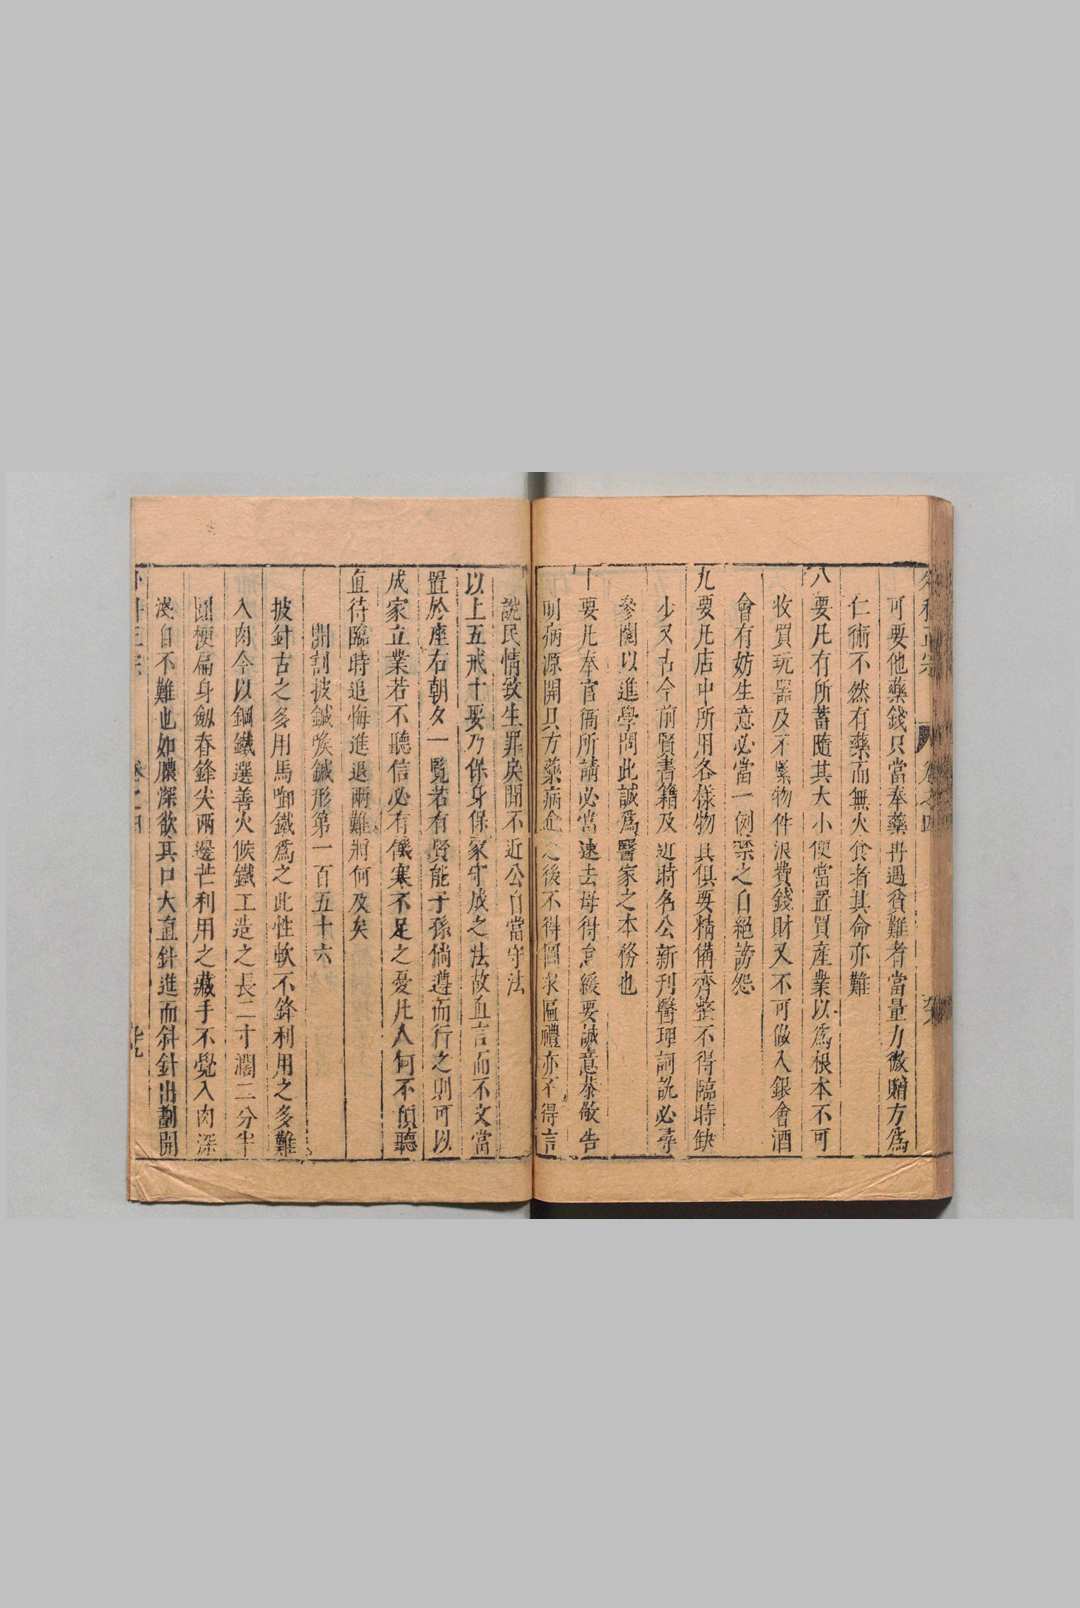 外科正宗 卷之四
可要他藥錢只當奉藥再遇貧難者當量力微贈方爲
仁術不然有藥而無火食者其命亦難
八要凡有所蓄隨其大小便當置買産業以爲根本不可
收買玩器及不緊物件浪費錢財又不可做入銀會酒
會有妨生意必當一例禁之自絕謗怨
九要凡店中所用各樣物具俱要精備齊整不得臨時缺
少又古今前賢書籍及近時名公新刊醫理詞說必尋
參閱以進學問此誠爲醫家之本務也
十要凡奉官衙所請必當速去毋得怠緩要誠意恭敬告
明病源開具方藥病愈之後不得圖求匾禮亦不得言
說民情致生罪戾閒不近公自當守法
以上五戒十要乃保身保家守成之法故直言而不文當
置於座右朝夕一覽若有賢能子孫倘遵而行之則可以
成家立業若不聽信必有饑寒不足之憂凡人何不傾聽
直待臨時追悔進退兩難將何及矣
割披鍼喉鍼形第一百五十六
披針古之多用馬啣鐵爲之此性軟不鋒利用之多難
入肉今以鋼鐵選善火候鐵工造之長二寸濶二分半
圓梗扁身劍脊鋒尖兩邊芒利用之藏手不覺入肉深
淺自不難也如膿深欲其口大直針進而斜針出劃開
外科正宗 卷之四